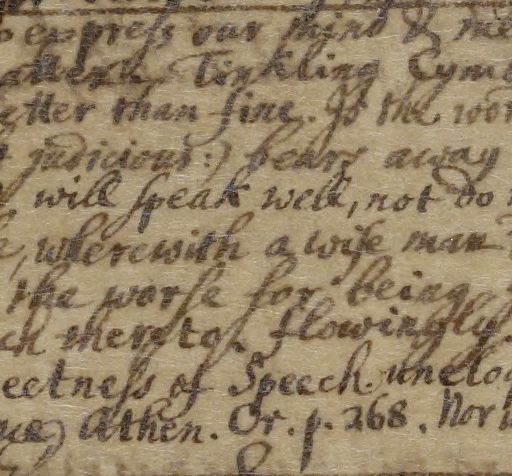 o express our mind & me
matter. Tinkling Cymb
etter than fine. Is the wor
judicious:) bears away
will speak well, not do
, wherewith a wise man
the worse for being
ch thereto. flowingly.
eetness of Speech. uneloq
Athen. Or. p. 268. Nor